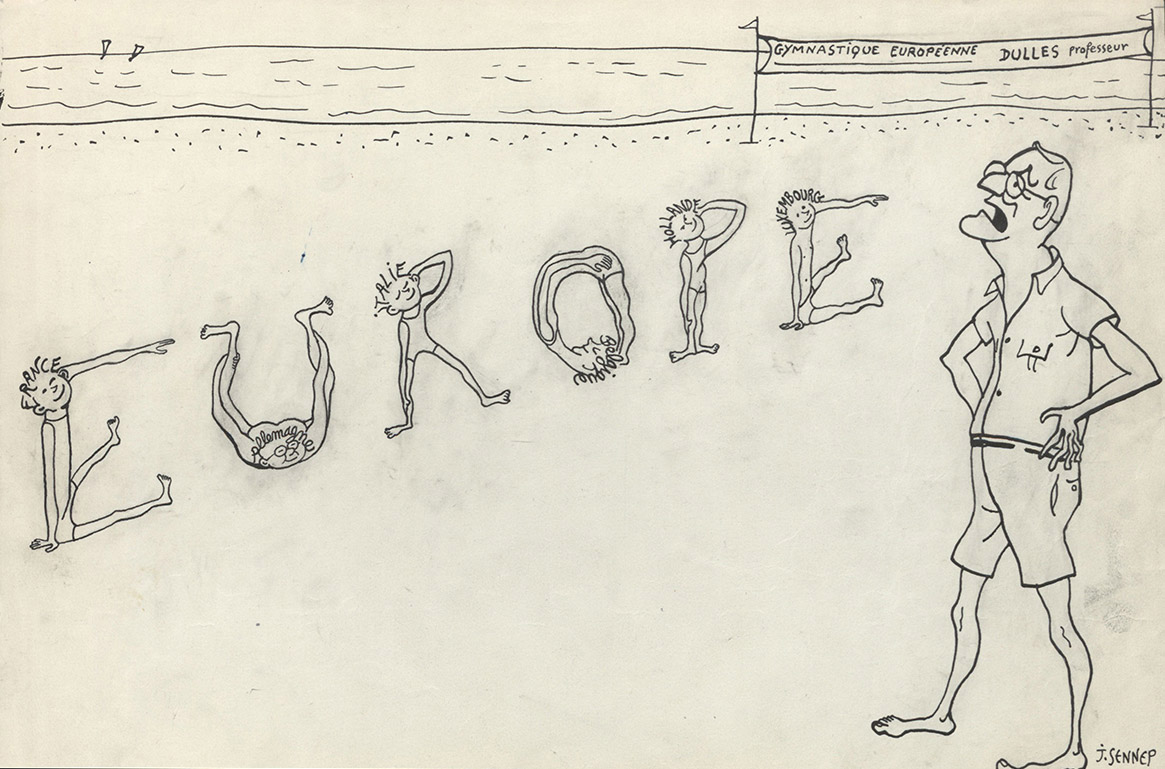 GYMNASTIQUE EUROPÉENNE DULLES professeur
FRANCE
Allemagne
ITALIE
Belgique
HOLLANDE
LUXEMBOURG
EUROPE
J. SENNEP